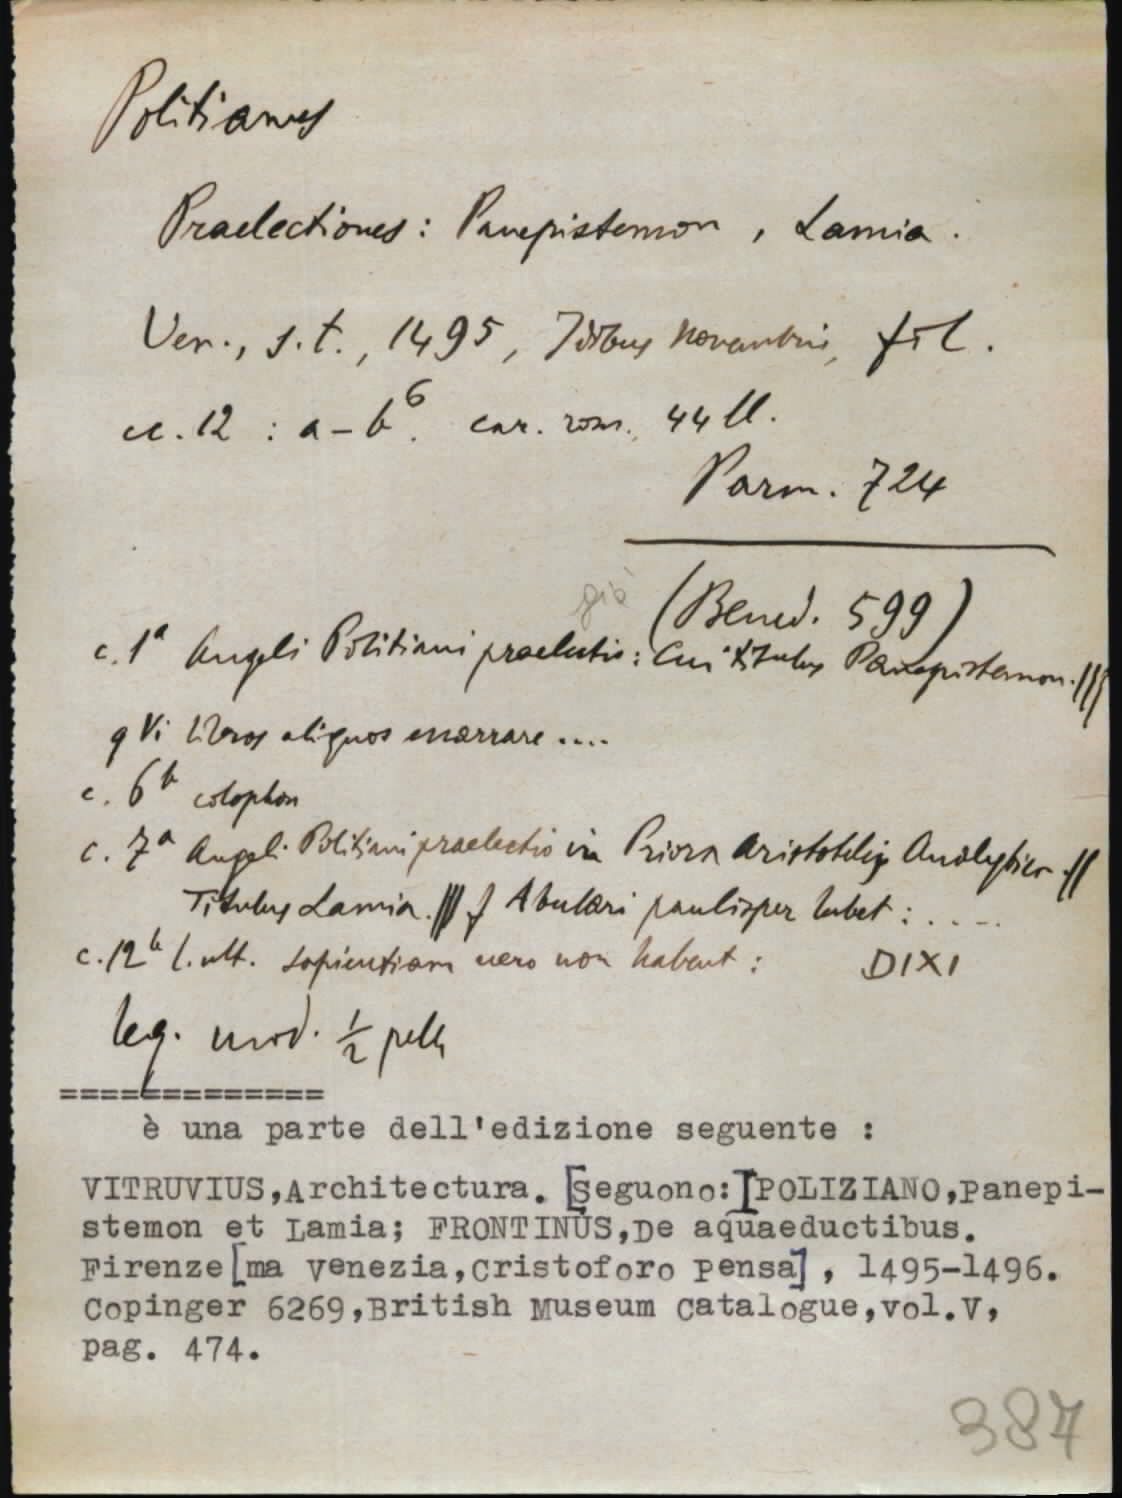 Politianus
Praelectiones: Panepistemon, Lamia.
Ven., s.t., 1495, Idibus Novembris, fol.
cc. 12 : a-b⁶. car. rom., 44 ll.
Parm. 724
già (Bened. 599)
c. 1ª Angeli Politiani praelectio: Cui titulus Panepistemon.///
qVi libros aliquos enarrare....
c. 6ᵇ colophon
c. 7ª Angeli Politiani praelectio in Priora Aristotelis Analytica.//
Titulus Lamia./// f Abulari paulisper lubet : . . . .
c. 12ᵇ l. ult. sapientiam vero non habent : DIXI
leg. mod. ½ pelle
=============
è una parte dell'edizione seguente :
VITRUVIUS,Architectura. [Seguono:]POLIZIANO,Panepi-
stemon et Lamia; FRONTINUS,De aquaeductibus.
Firenze[ma Venezia,Cristoforo Pensa], 1495-1496.
Copinger 6269,British Museum Catalogue,vol.V,
pag. 474.
387